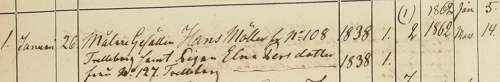 (1) 1862 Jan 5.
1. Januari 26. Målare Gesällen Hans Möller fr No 108 1838 1. 2 1862 Nov 14
Trelleborg samt Pigan Elna Persdotter 1838 1.
från No 127 Trelleborg